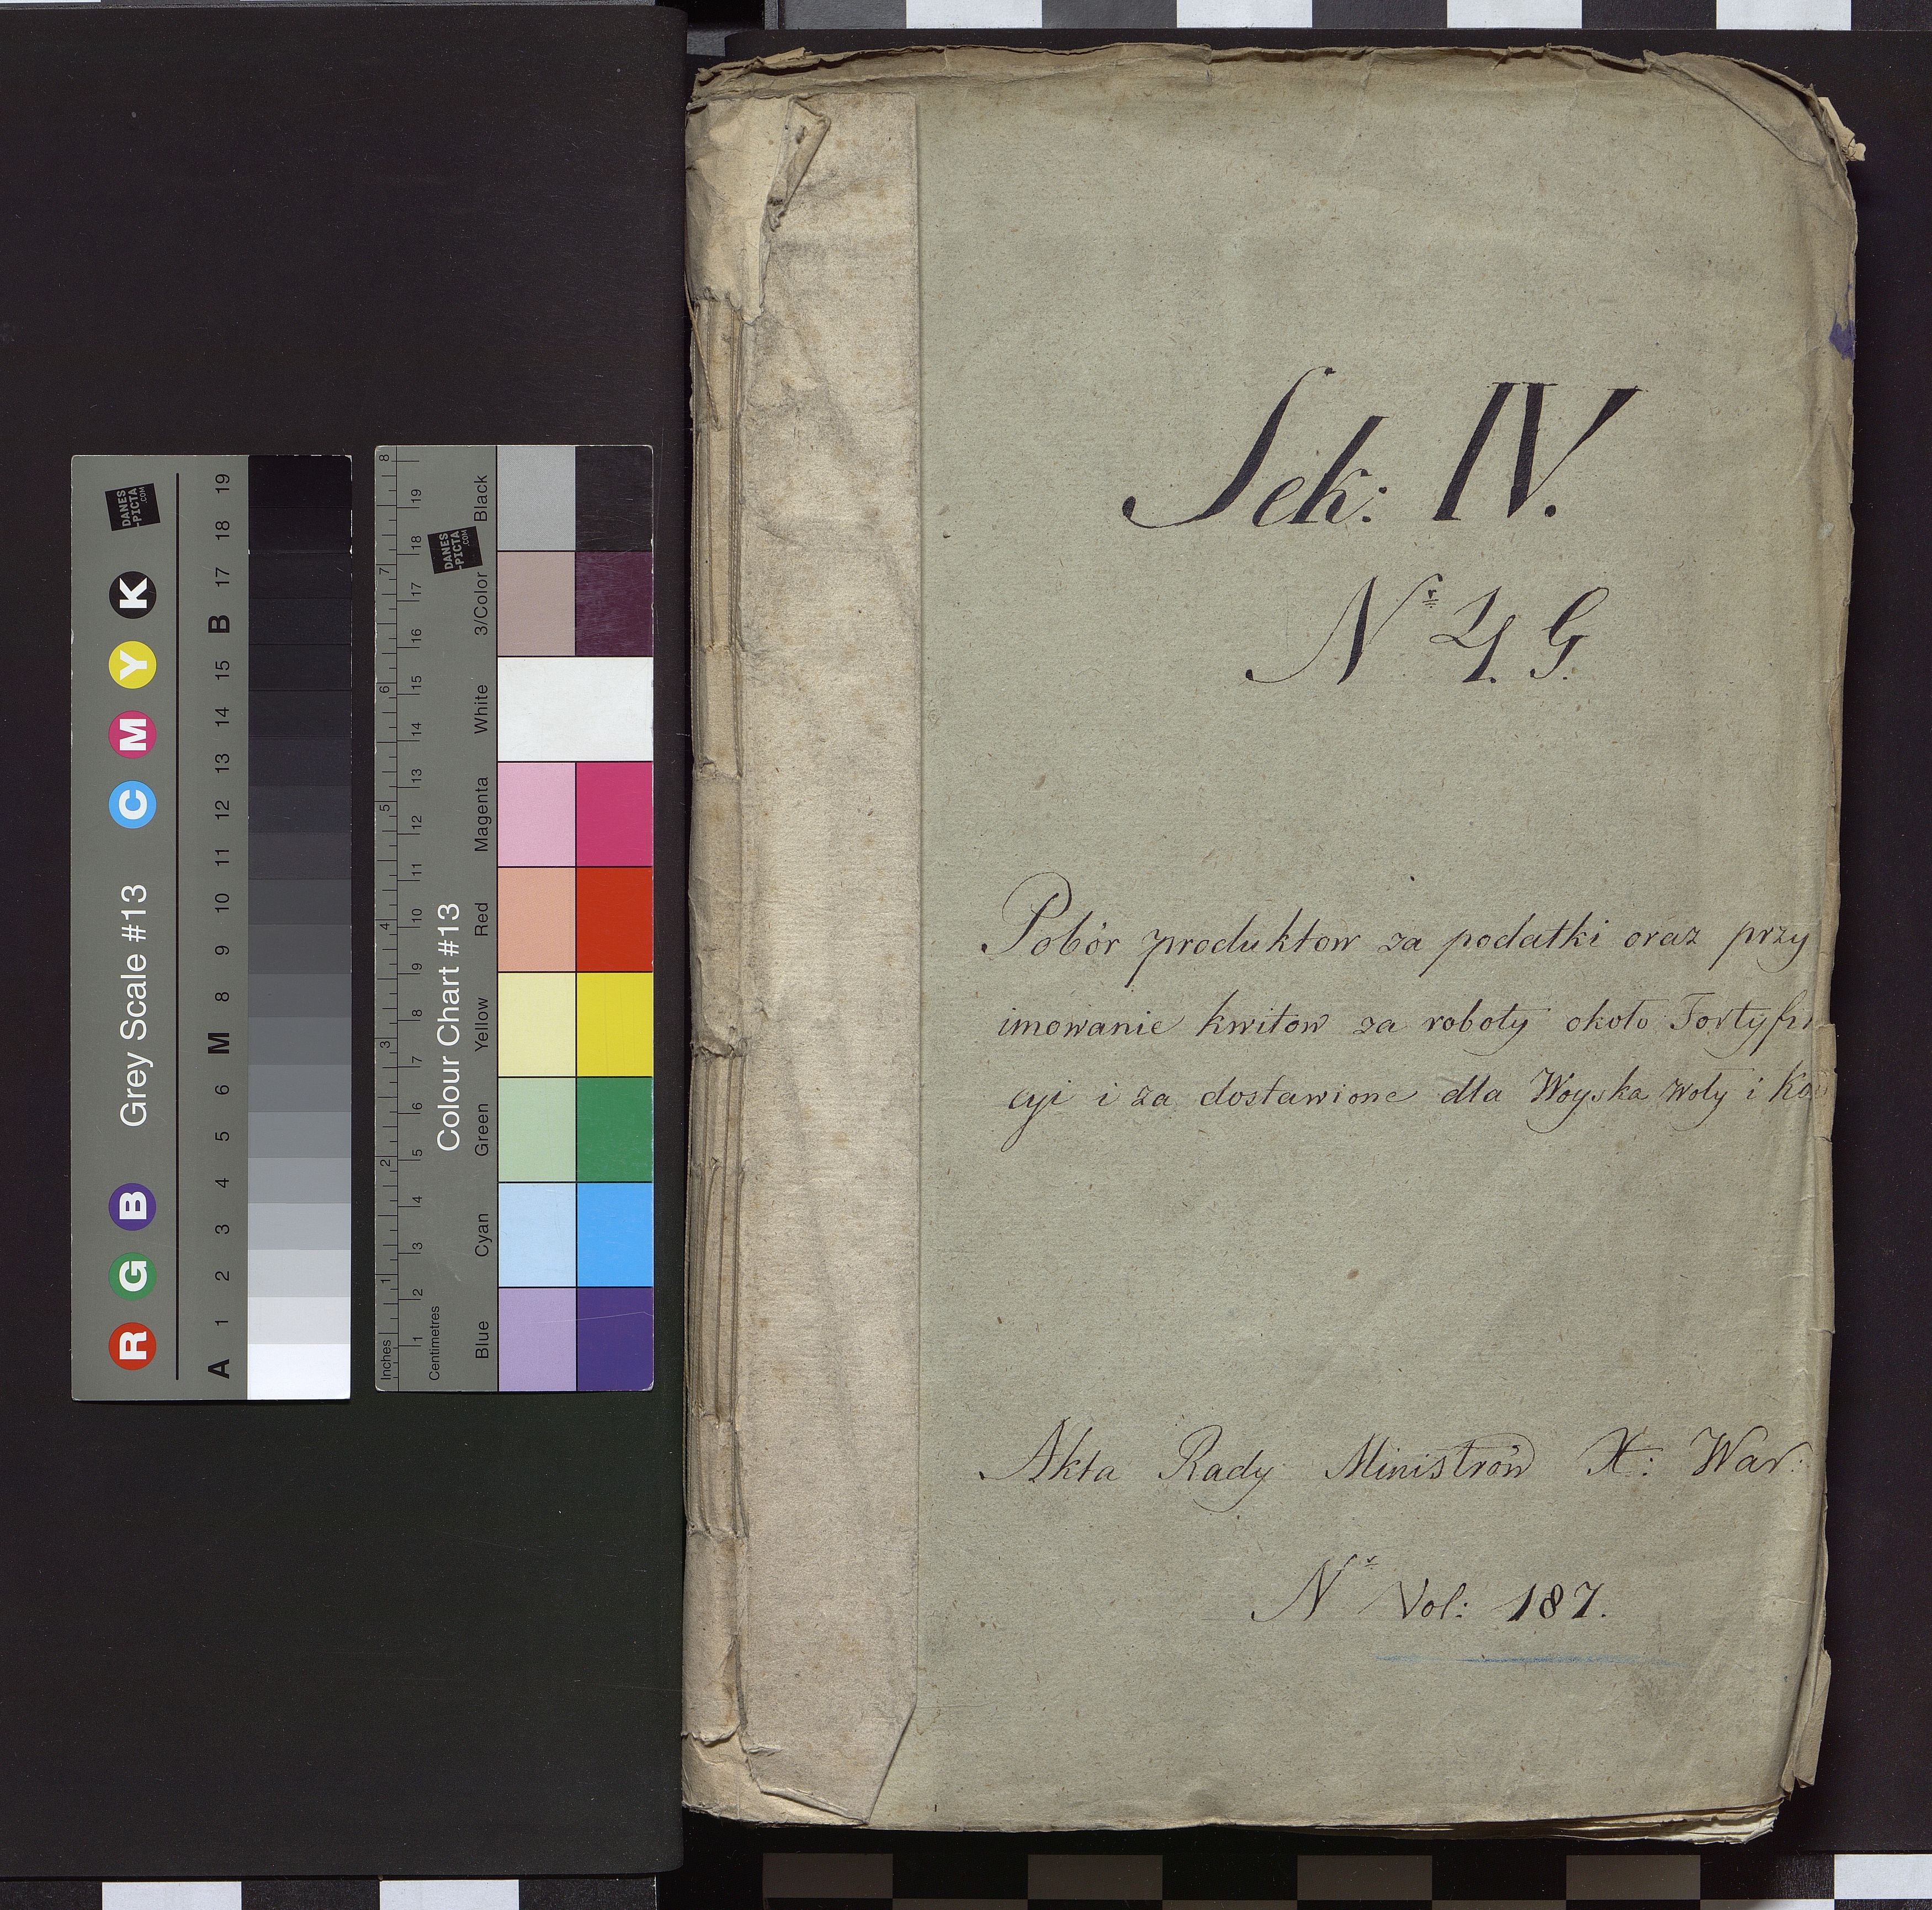 Sek: IV.
Nr 4. G.
Pobór produktow za podatki oraz przy
imowanie kwitow za roboty około Fortyfi
cyi i za dostawione dla Woyska woły i
Akta Rady Ministrów X: War:
Nr Vol: 187.
Grey Scale #13
R G B C M Y K
A 1 2 3 4 5 6 M 8 9 10 11 12 13 14 15 B 17 18 19
DANES
-PICTA
.COM
Colour Chart #13
Blue Cyan Green Yellow Red Magenta White 3/Color Black
Inches 1 2 3 4 5 6 7 8
Centimetres 1 2 3 4 5 6 7 8 9 10 11 12 13 14 15 16 17 18 19
DANES
-PICTA
.COM